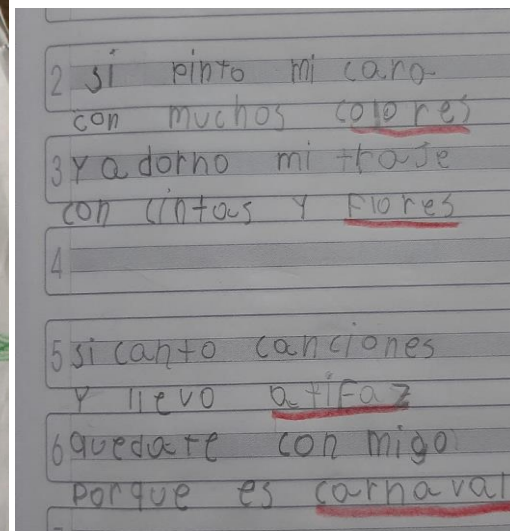 2 si pinto mi cara
con muchos colores
3 Y adorno mi traje
con cintas Y Flores
4
5 si canto canciones
Y llevo atifaz
6 quedate con migo
Porque es carnaval